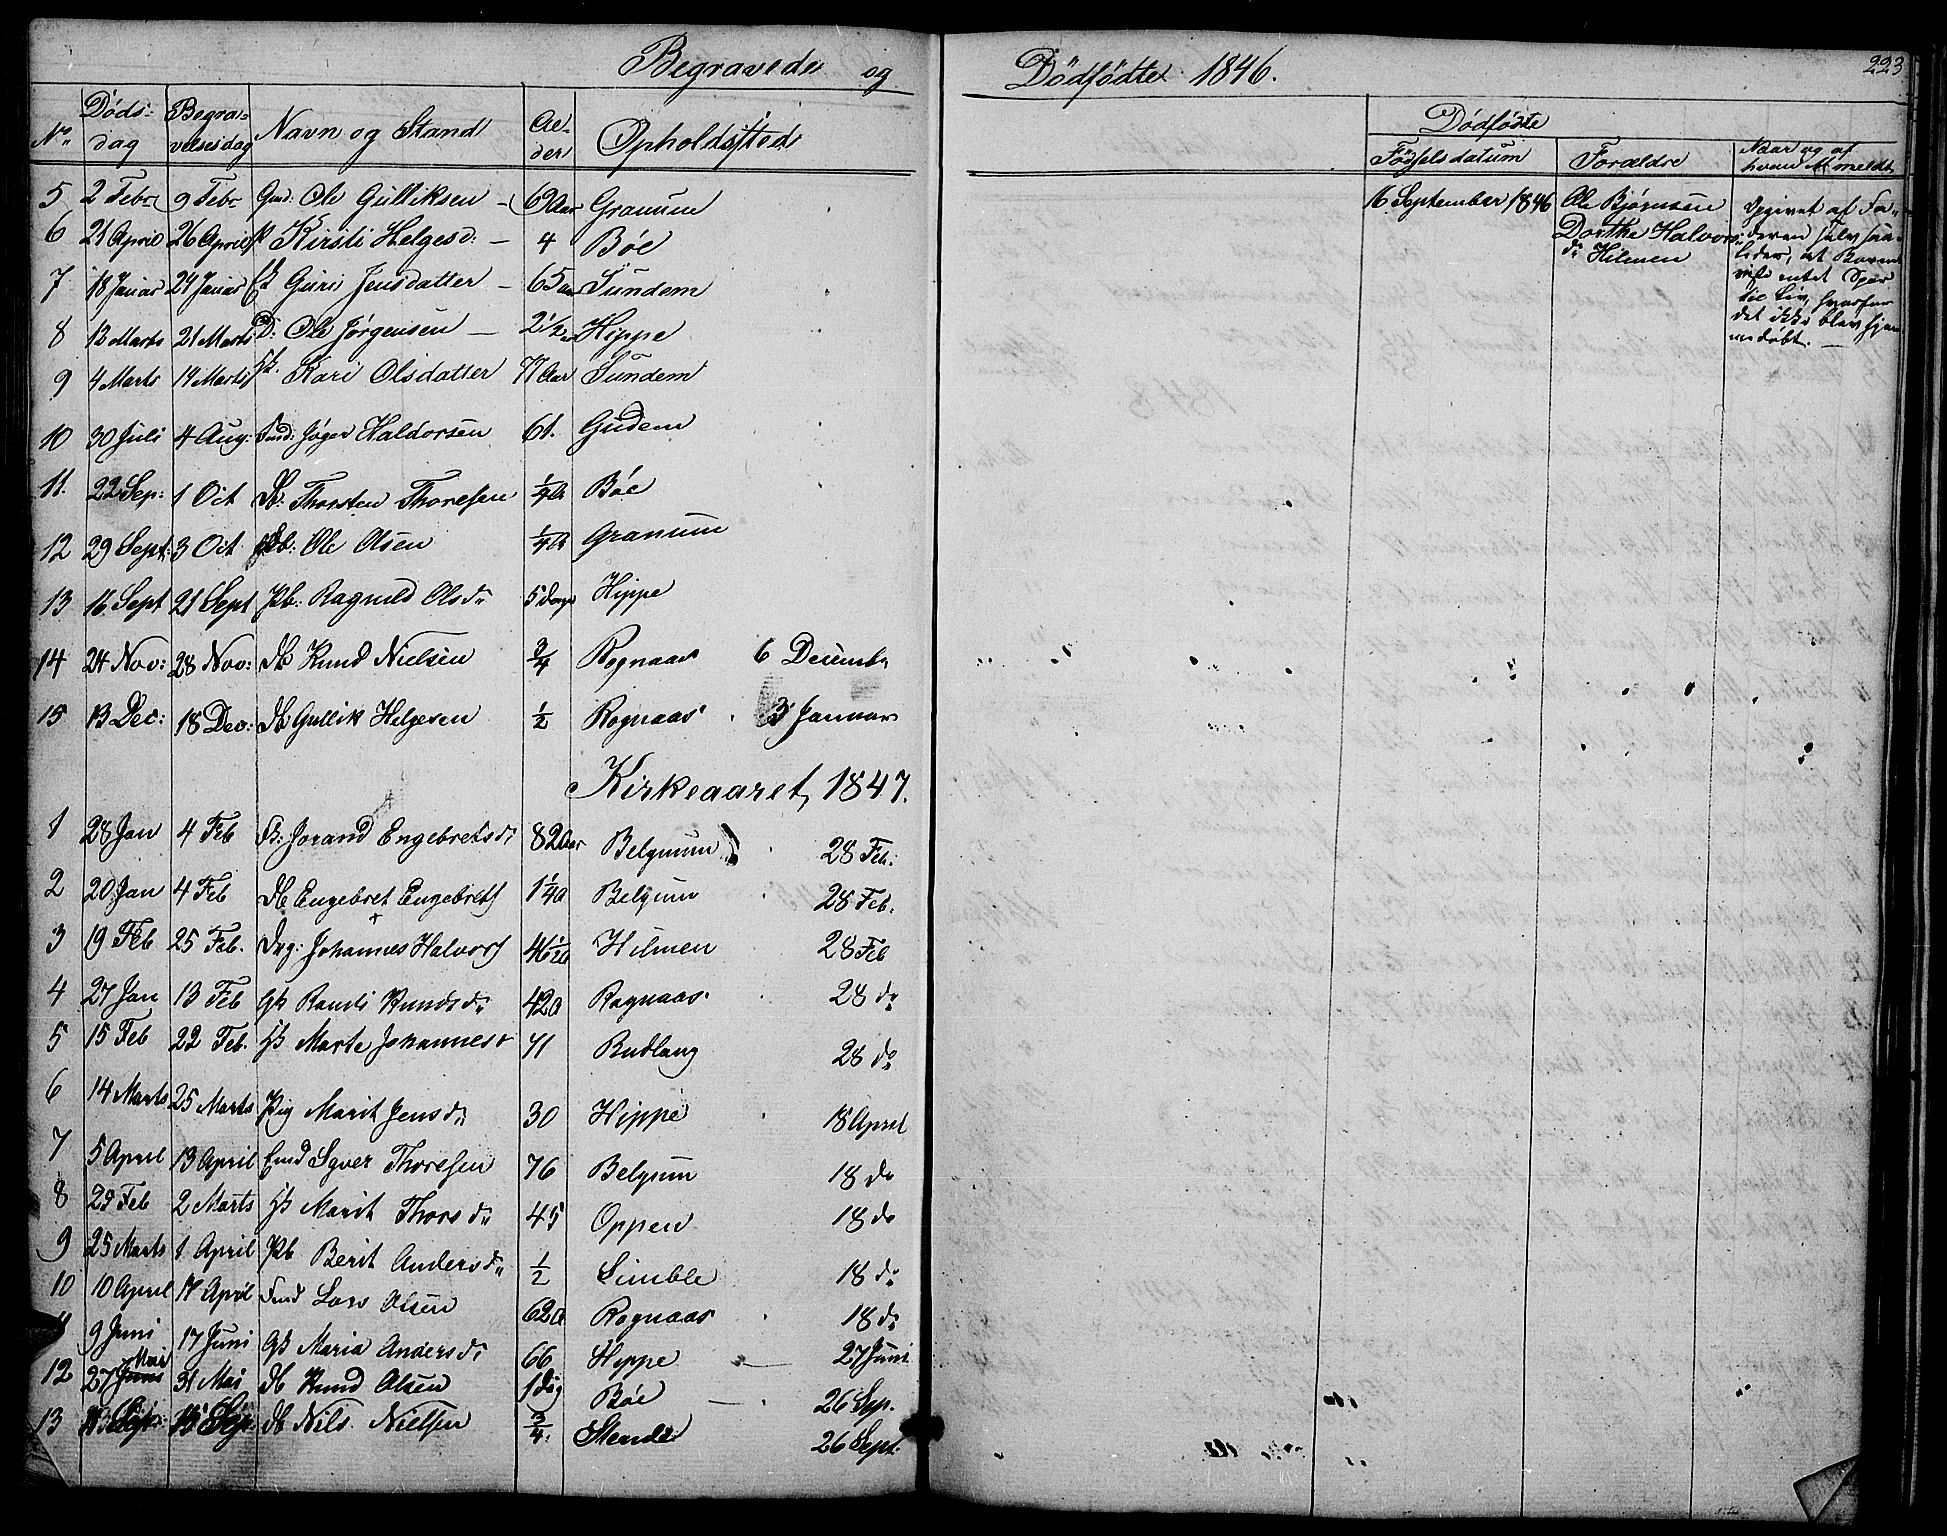 Begravede og Dödfödte 1846.
223
No Döds- dag Begra- velsesdag Navn og Stand Al- der Opholdssted
Dödfödte
Födselsdatum Forældre Naar og af hvem Anmeldt
5 2 Febr 9 Febr Gmd: Ole Gulliksen - 69 Aar Granum
6 21 April 26 April Kirsti Helgesd: - 4 Bøe
7 18 Januar 24 Januar Guri Jensdatter - 65 aar Sundem
8 12 Marts 21 Marts D: Ole Jørgensen - 2 1/2 Hippe
9 4 Marts 14 Marts Kari Olsdatter 77 Aar Sundem
10 30 Juli 4 Aug: Haldorsen 61. Gudem
11. 22 Sep: 1 Oct Thorsten Thoresen 1/4 a Bóe
12 29 Sept: 3 Oct Db: Ole Olsen 1/4 a Granum
13 16 Sept 21 Sept Pb: Ragnild Olsdr 5 Dage Hippe
14 24 Nov: 28 Nov: Db Knud Nielsen 3/4 Rognaas 6 Decembr
15 13 Dec: 18 Dec: Db Gullik Helgesen 1/2 Rognaas 3 Januar
16 September 1846 Ole Bjørnsen
Dorthe Halvors
dr Hilmen
Opgivet af Fa-
deren selv saa-
ledes, at Barnet
viste intet Spor
til Liv, hvorfor
det ikke blev hjem-
medøbt. —
Kirkeaaret 1847.
1 28 Jan 4 Feb Jorand Engebretsdr 82 Aar Belgum 28 Feb.
2 20 Jan 4 Feb Db Engebret Engebrets 1 1/4 a Belgum 28 Feb.
3 19 Feb 25 Feb. Johannes Halvors 46 1/2 a Hilmen 28 Feb
4 27 Jan 13 Feb Gk Randi Knudsdr 42 a Rognaas 28 do
5 15 Feb 22 Feb. Marte Johannesd 71 Rudlang 28 do
6 14 Marts 25 Marts Pig Marit Jensdr 30 Hippe 18 April
7 5 April 13 April Syver Thoresen 76 Belgum 18 do
8 25 Feb 2 Marts Marit Thorsdr 45 Oppen 18 do
9 25 Marts 1 April Pb Berit Andersdr 1/2 Simble 18 do
10 10 April 17 April Lars Olsen 62 a Rognaas 18 do
11 9 Juni 17 Juni Gk Maria Andersdr 66 Hippe 27 Juni
12 27 Juni Mai 31 Mai Db Knud Olsen 1 Dag Bóe 26 Sep.
13 13 Sep: 15 Sep Db Nils. Nielsen 3/4. 26 Sept.